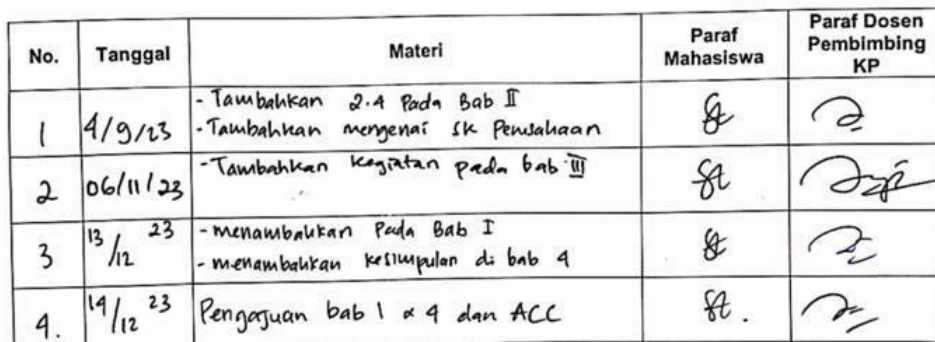 No. Tanggal Materi Paraf Mahasiswa Paraf Dosen Pembimbing KP
1 4/9/23 - Tambahkan 2.4 Pada Bab II
- Tambahkan mengenai SK Perusahaan
2 06/11/23 - Tambahkan kegiatan pada bab III
3 13/12 23 - menambahkan Pada Bab I
- menambahkan kesimpulan di bab 4
4. 14/12 23 Pengajuan bab 1 & 4 dan ACC